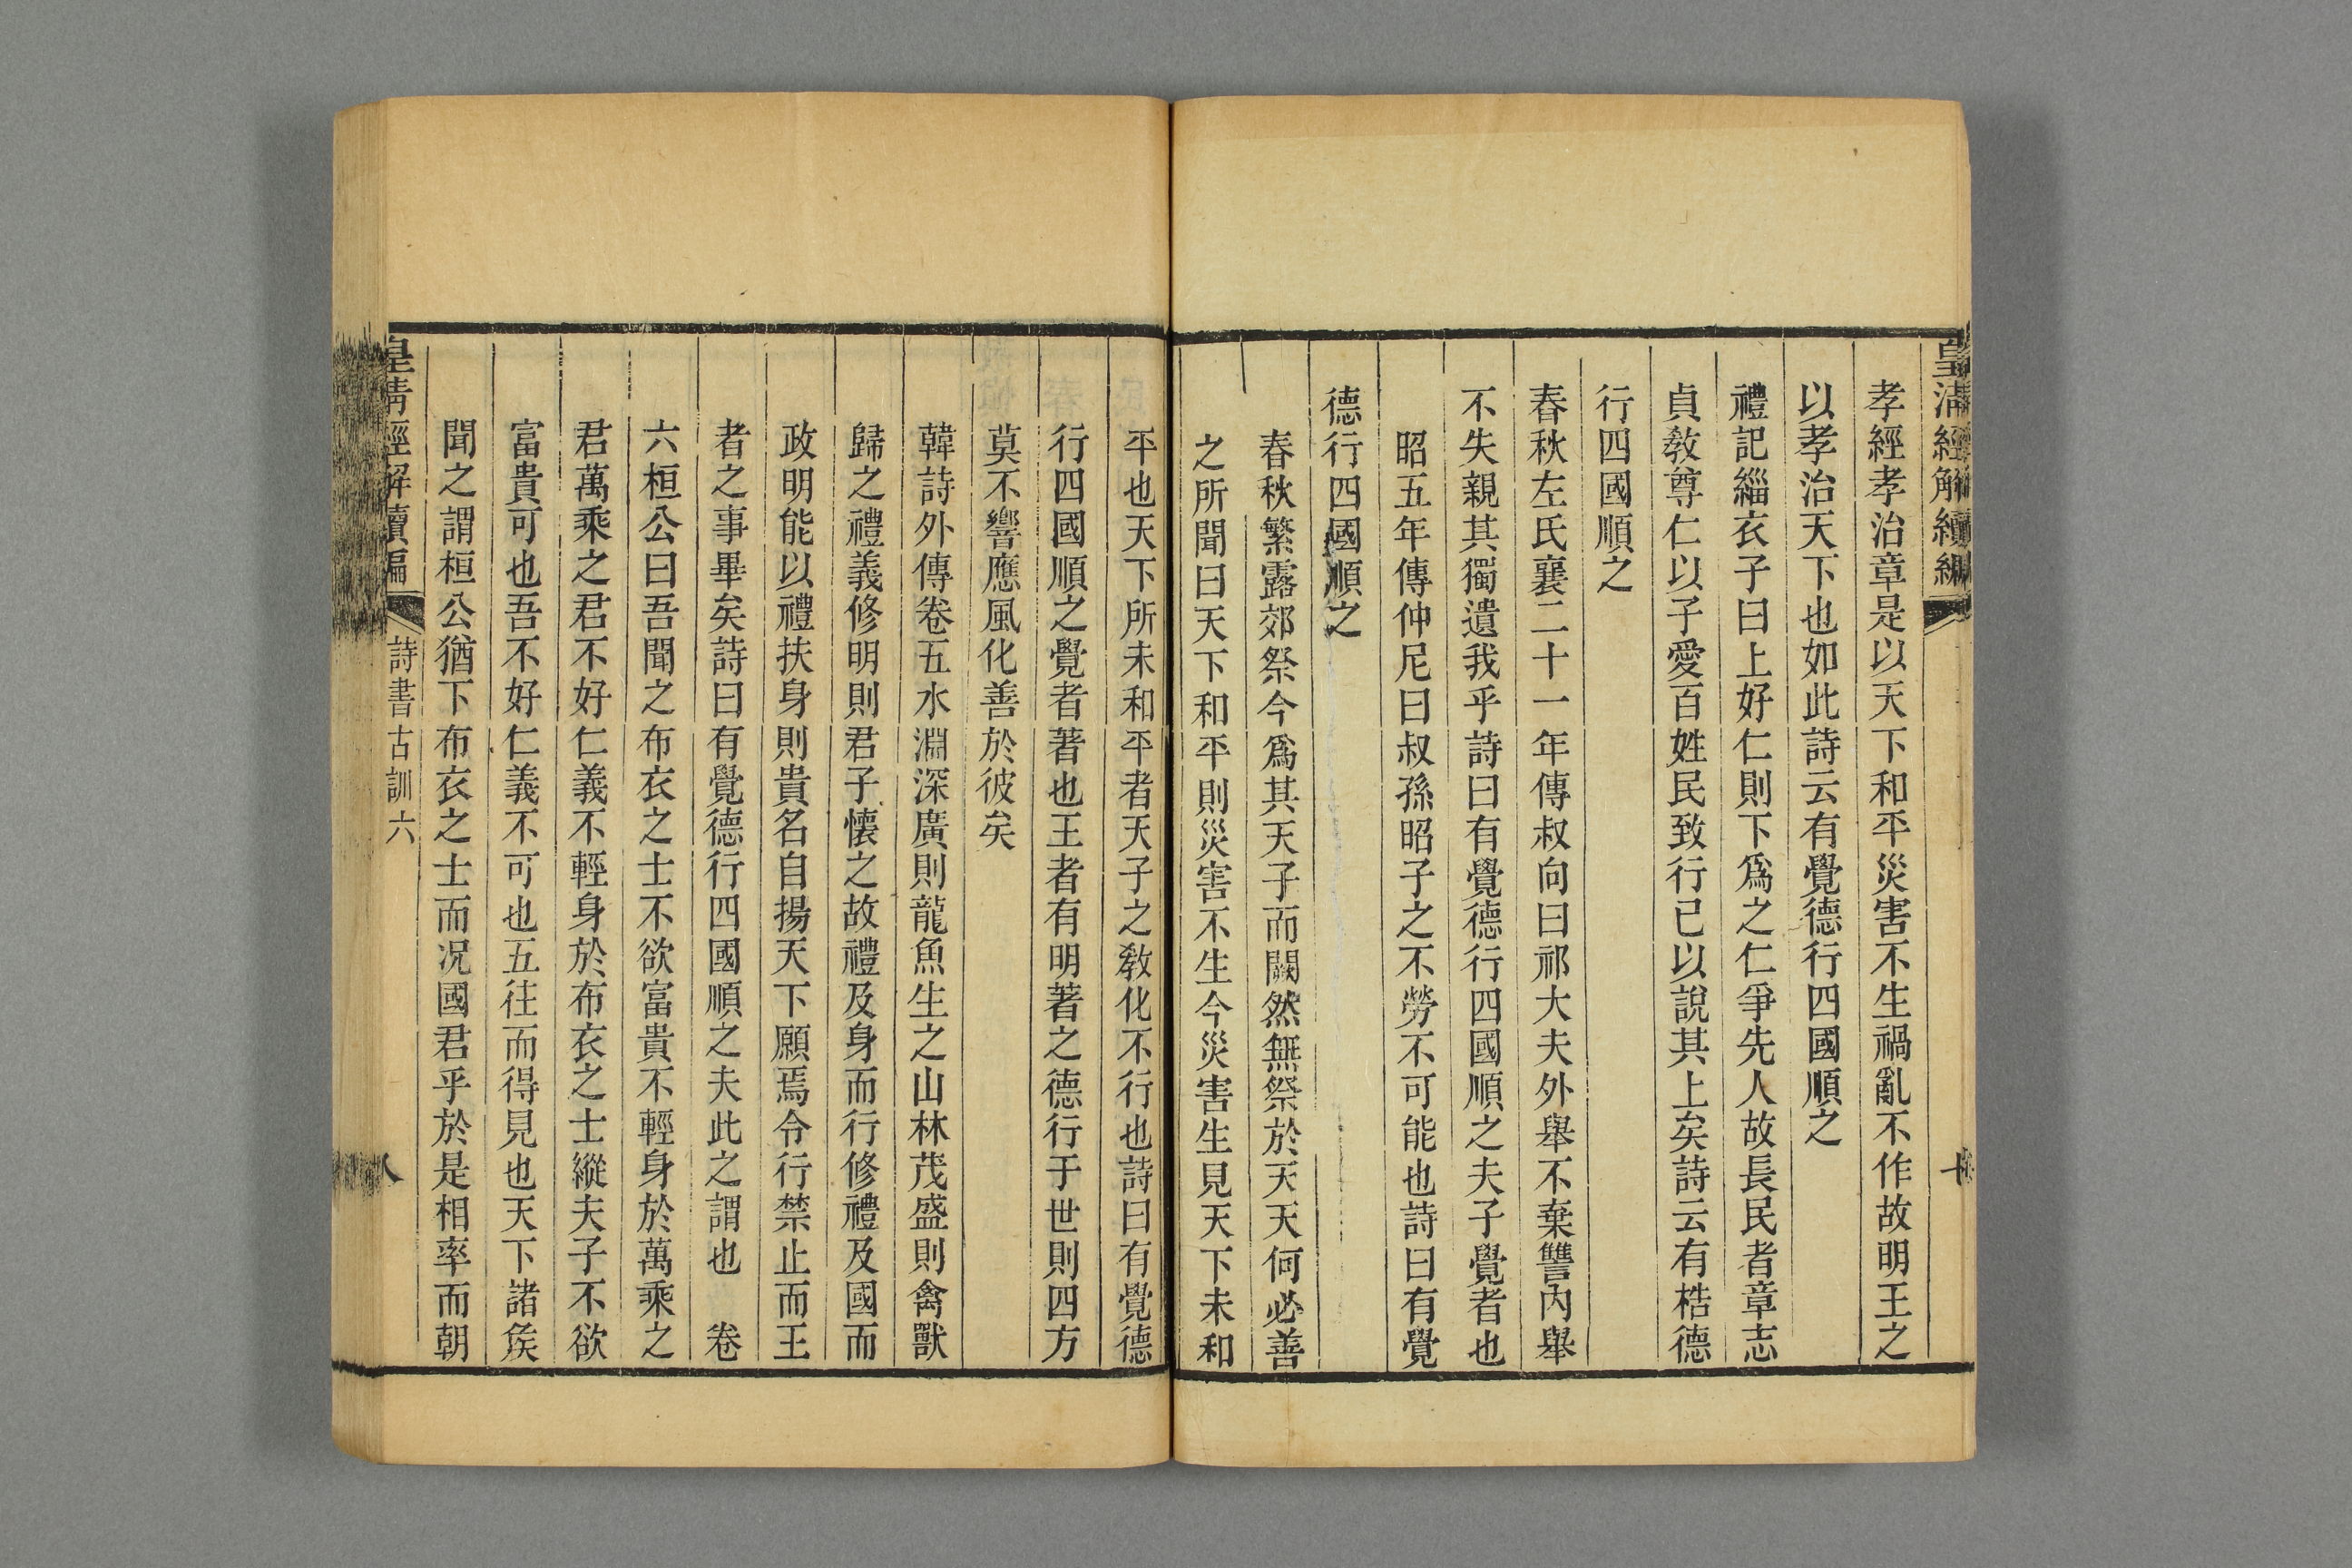 皇清經解續編
十
孝經孝治章是以天下和平災害不生禍亂不作故明王之
以孝治天下也如此詩云有覺德行四國順之
禮記緇衣子曰上好仁則下爲之仁爭先人故長民者章志
貞敎尊仁以子愛百姓民致行己以說其上矣詩云有梏德
行四國順之
春秋左氏襄二十一年傳叔向曰祁大夫外舉不棄讐內舉
不失親其獨遺我乎詩曰有覺德行四國順之夫子覺者也
昭五年傳仲尼曰叔孫昭子之不勞不可能也詩曰有覺
德行四國順之
春秋繁露郊祭今爲其天子而闕然無祭於天天何必善
之所聞曰天下和平則災害不生今災害生見天下未和
平也天下所未和平者天子之敎化不行也詩曰有覺德
行四國順之覺者著也王者有明著之德行于世則四方
莫不響應風化善於彼矣
韓詩外傳卷五水淵深廣則龍魚生之山林茂盛則禽獸
歸之禮義修明則君子懷之故禮及身而行修禮及國而
政明能以禮扶身則貴名自揚天下願焉令行禁止而王
者之事畢矣詩曰有覺德行四國順之夫此之謂也　卷
六桓公曰吾聞之布衣之士不欲富貴不輕身於萬乘之
君萬乘之君不好仁義不輕身於布衣之士縱夫子不欲
富貴可也吾不好仁義不可也五往而得見也天下諸矦
聞之謂桓公猶下布衣之士而況國君乎於是相率而朝
皇清經解續編
詩書古訓六
八